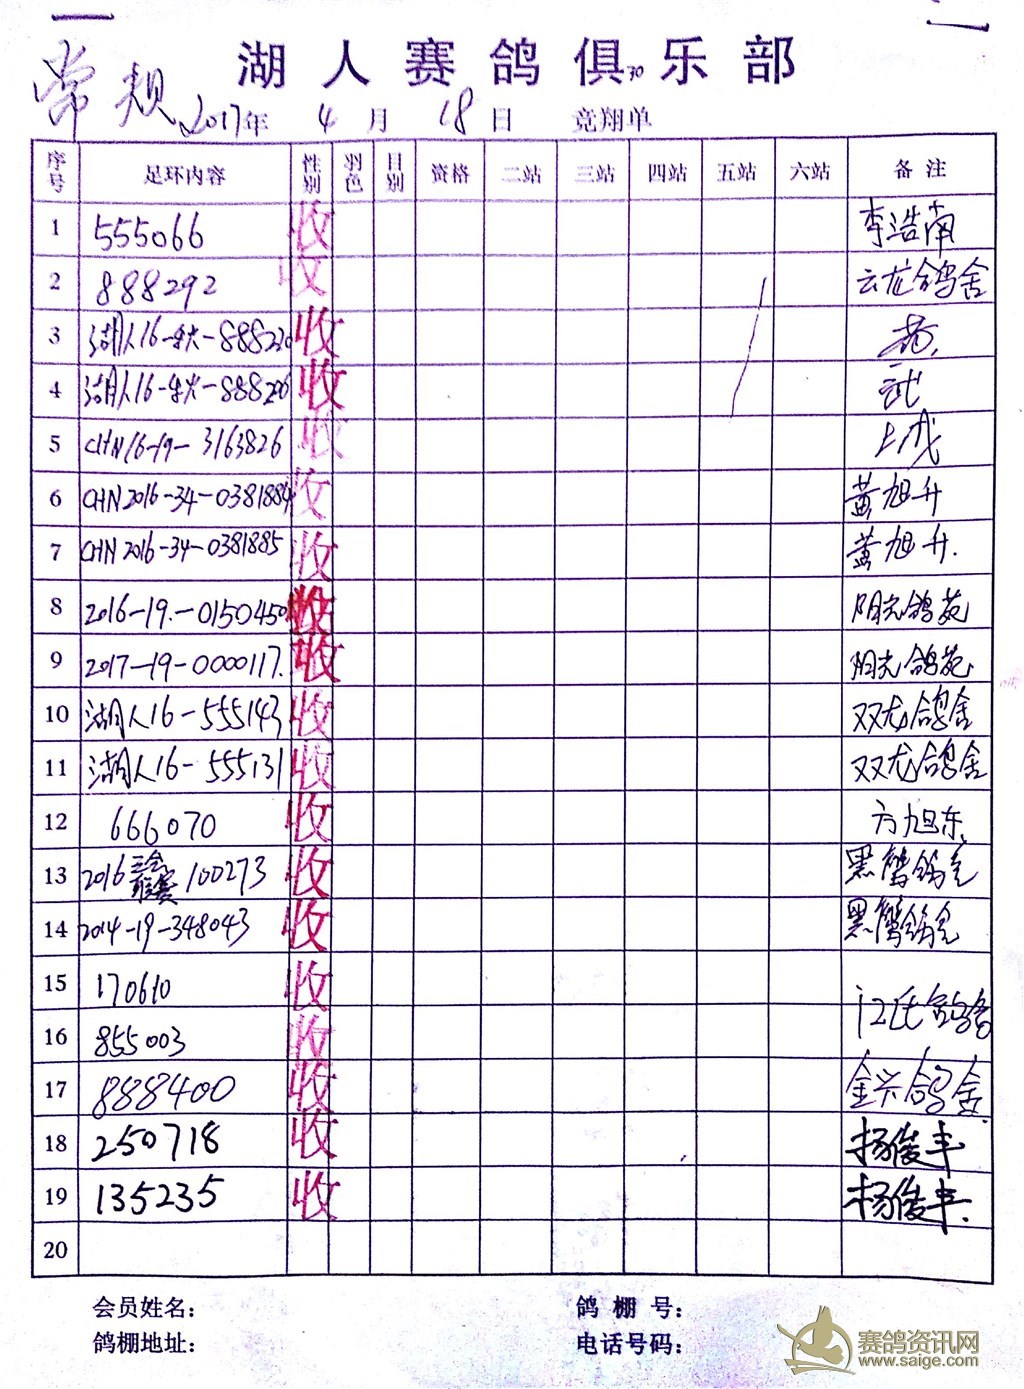 湖人赛鸽俱乐部
常规
70
2017年 4月 18日 竞翔单
序号 足环内容 性别 羽色 目别 资格 二站 三站 四站 五站 六站 备注
1 555066 收 李浩南
2 888292 收 云龙鸽舍
3 湖人16- -888220 收
4 湖人16- -888206 收 武
5 CHN16-19-3163826 收 上成
6 CHN2016-34-0381884 收 黄旭升
7 CHN2016-34-0381885 收 黄旭升.
8 2016-19.-0150450 收 阳光鸽苑
9 2017-19-0000117. 收 阳光鸽苑
10 湖人16-555143 收 双龙鸽舍
11 湖人16-555131 收 双龙鸽舍
12 666070 收 方旭东
13 2016 100273 收 黑鹰鸽舍
14 2014-19-348043 收 黑鹰鸽舍
15 170610 收 江氏鸽舍
16 855003 收
17 888400 收 金兴鸽舍
18 250718 收 杨俊丰
19 135235 收 杨俊丰.
20
会员姓名： 鸽棚号：
鸽棚地址： 电话号码：
赛鸽资讯网
www.saige.com